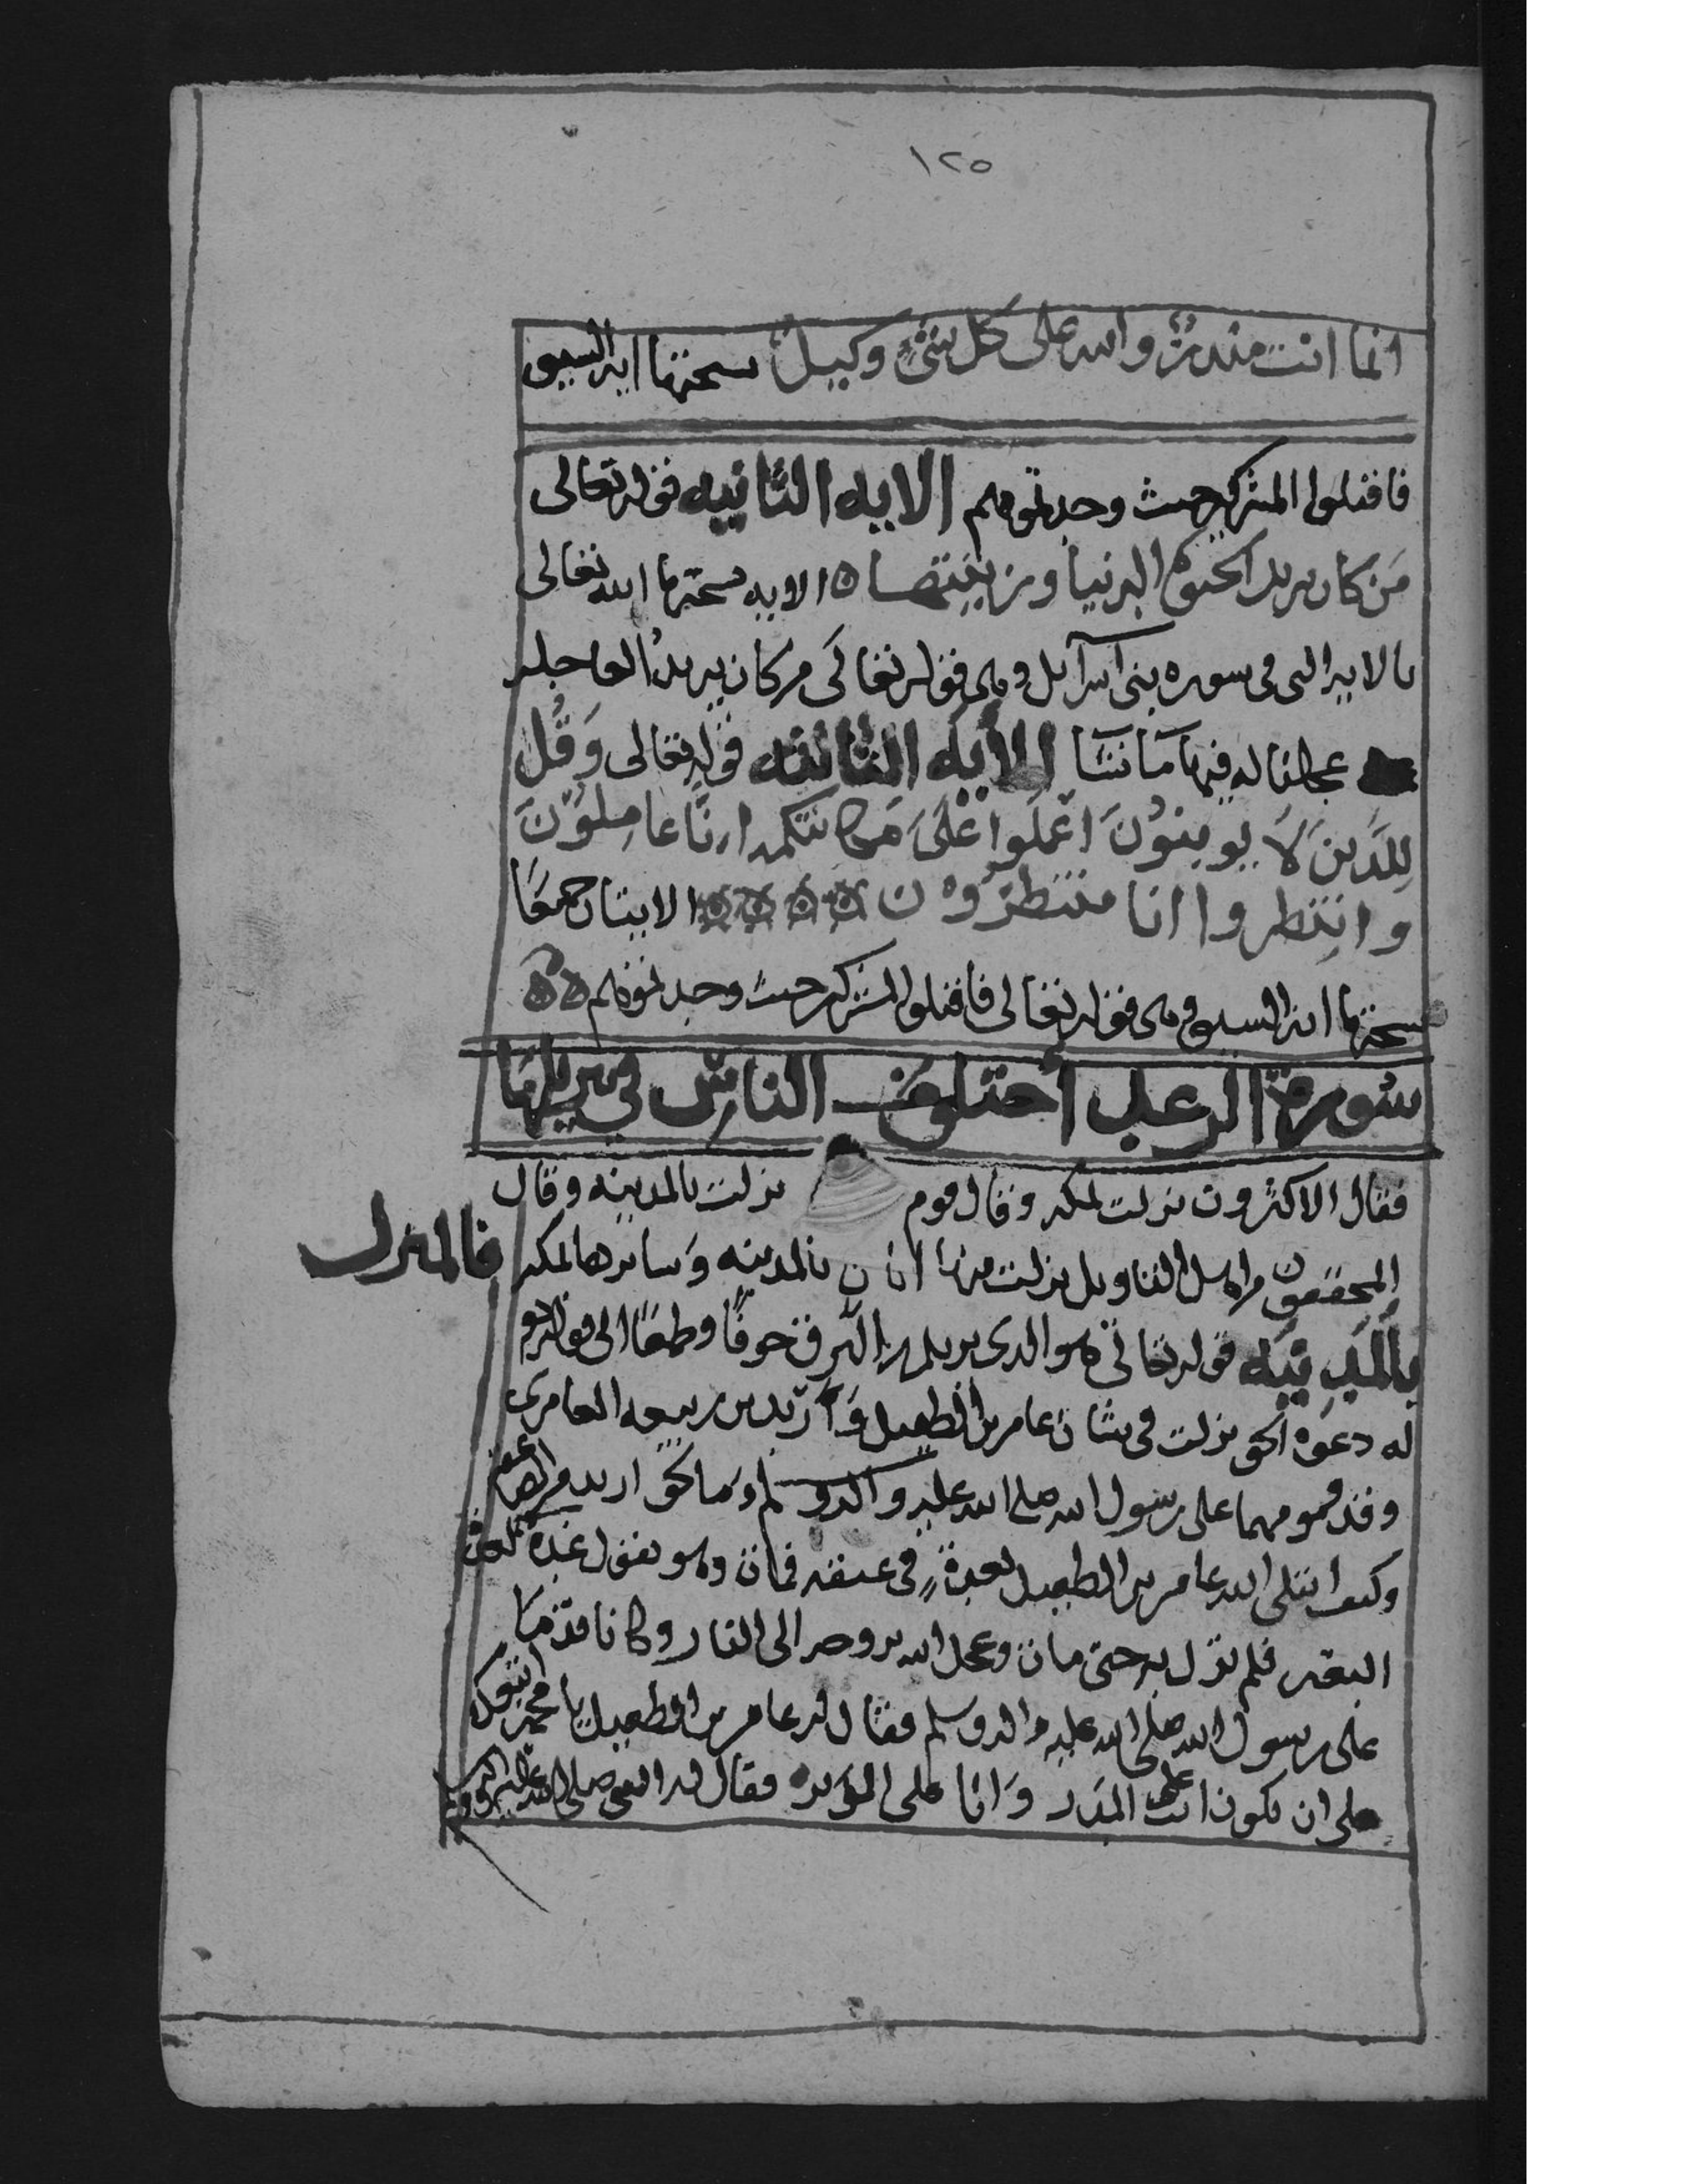 ١٢٥
انما انت منذر والله على كل شئ وكيل نسختها ايه السيف
فاقتلوا المشركين حيث وجدتموهم الايه الثانيه قوله تعالى
من كان يريد الحيوة الدنيا وزينتها الايه نسختها الله تعالى
بالايه التى فى سوره بنى اسرآيل وهى قوله تعالى من كان يريد العاجله
عجلنا له فيها ما نشا الايه الثالثه قوله تعالى وقل
للذين لا يومنون اعملوا على مكانتكم انا عاملون
وانتظروا انا منتظرون الايتان جميعا
نسختها ايه السيف وهى قوله تعالى فاقتلوا المشركين حيث وجدتموهم
سورة الرعد أختلف الناس في تنزيلها
فقال الاكثرون نزلت بمكه وقال قوم نزلت بالمدينه وقال
المحققون من اهل التاويل نزلت منها ايتان بالمدينه وسايرها بمكه فالمنزل
بالمدينه قوله تعالى هو الذى يريكم البرق خوفا وطمعا الى قوله
له دعوة الحق نزلت فى شان عامر بن الطفيل وأربد بن ربيعه العامرى
وقدومهما على رسول الله صلى الله عليه واله وسلم وما لحق اربد من الصاعقه
وكيف ابتلى الله عامر بن الطفيل بغدة فى عنقه فمات وهو يقول غدة كغدة
البعير فلم تزل به حتى مات وعجل الله بروحه الى النار وكانا قدما
على رسول الله صلى الله عليه واله وسلم فقال له عامر بن الطفيل يا محمد اتبعك
على ان تكون انت على المدر وانا على الوبر فقال له النبى صلى الله عليه واله وسلم